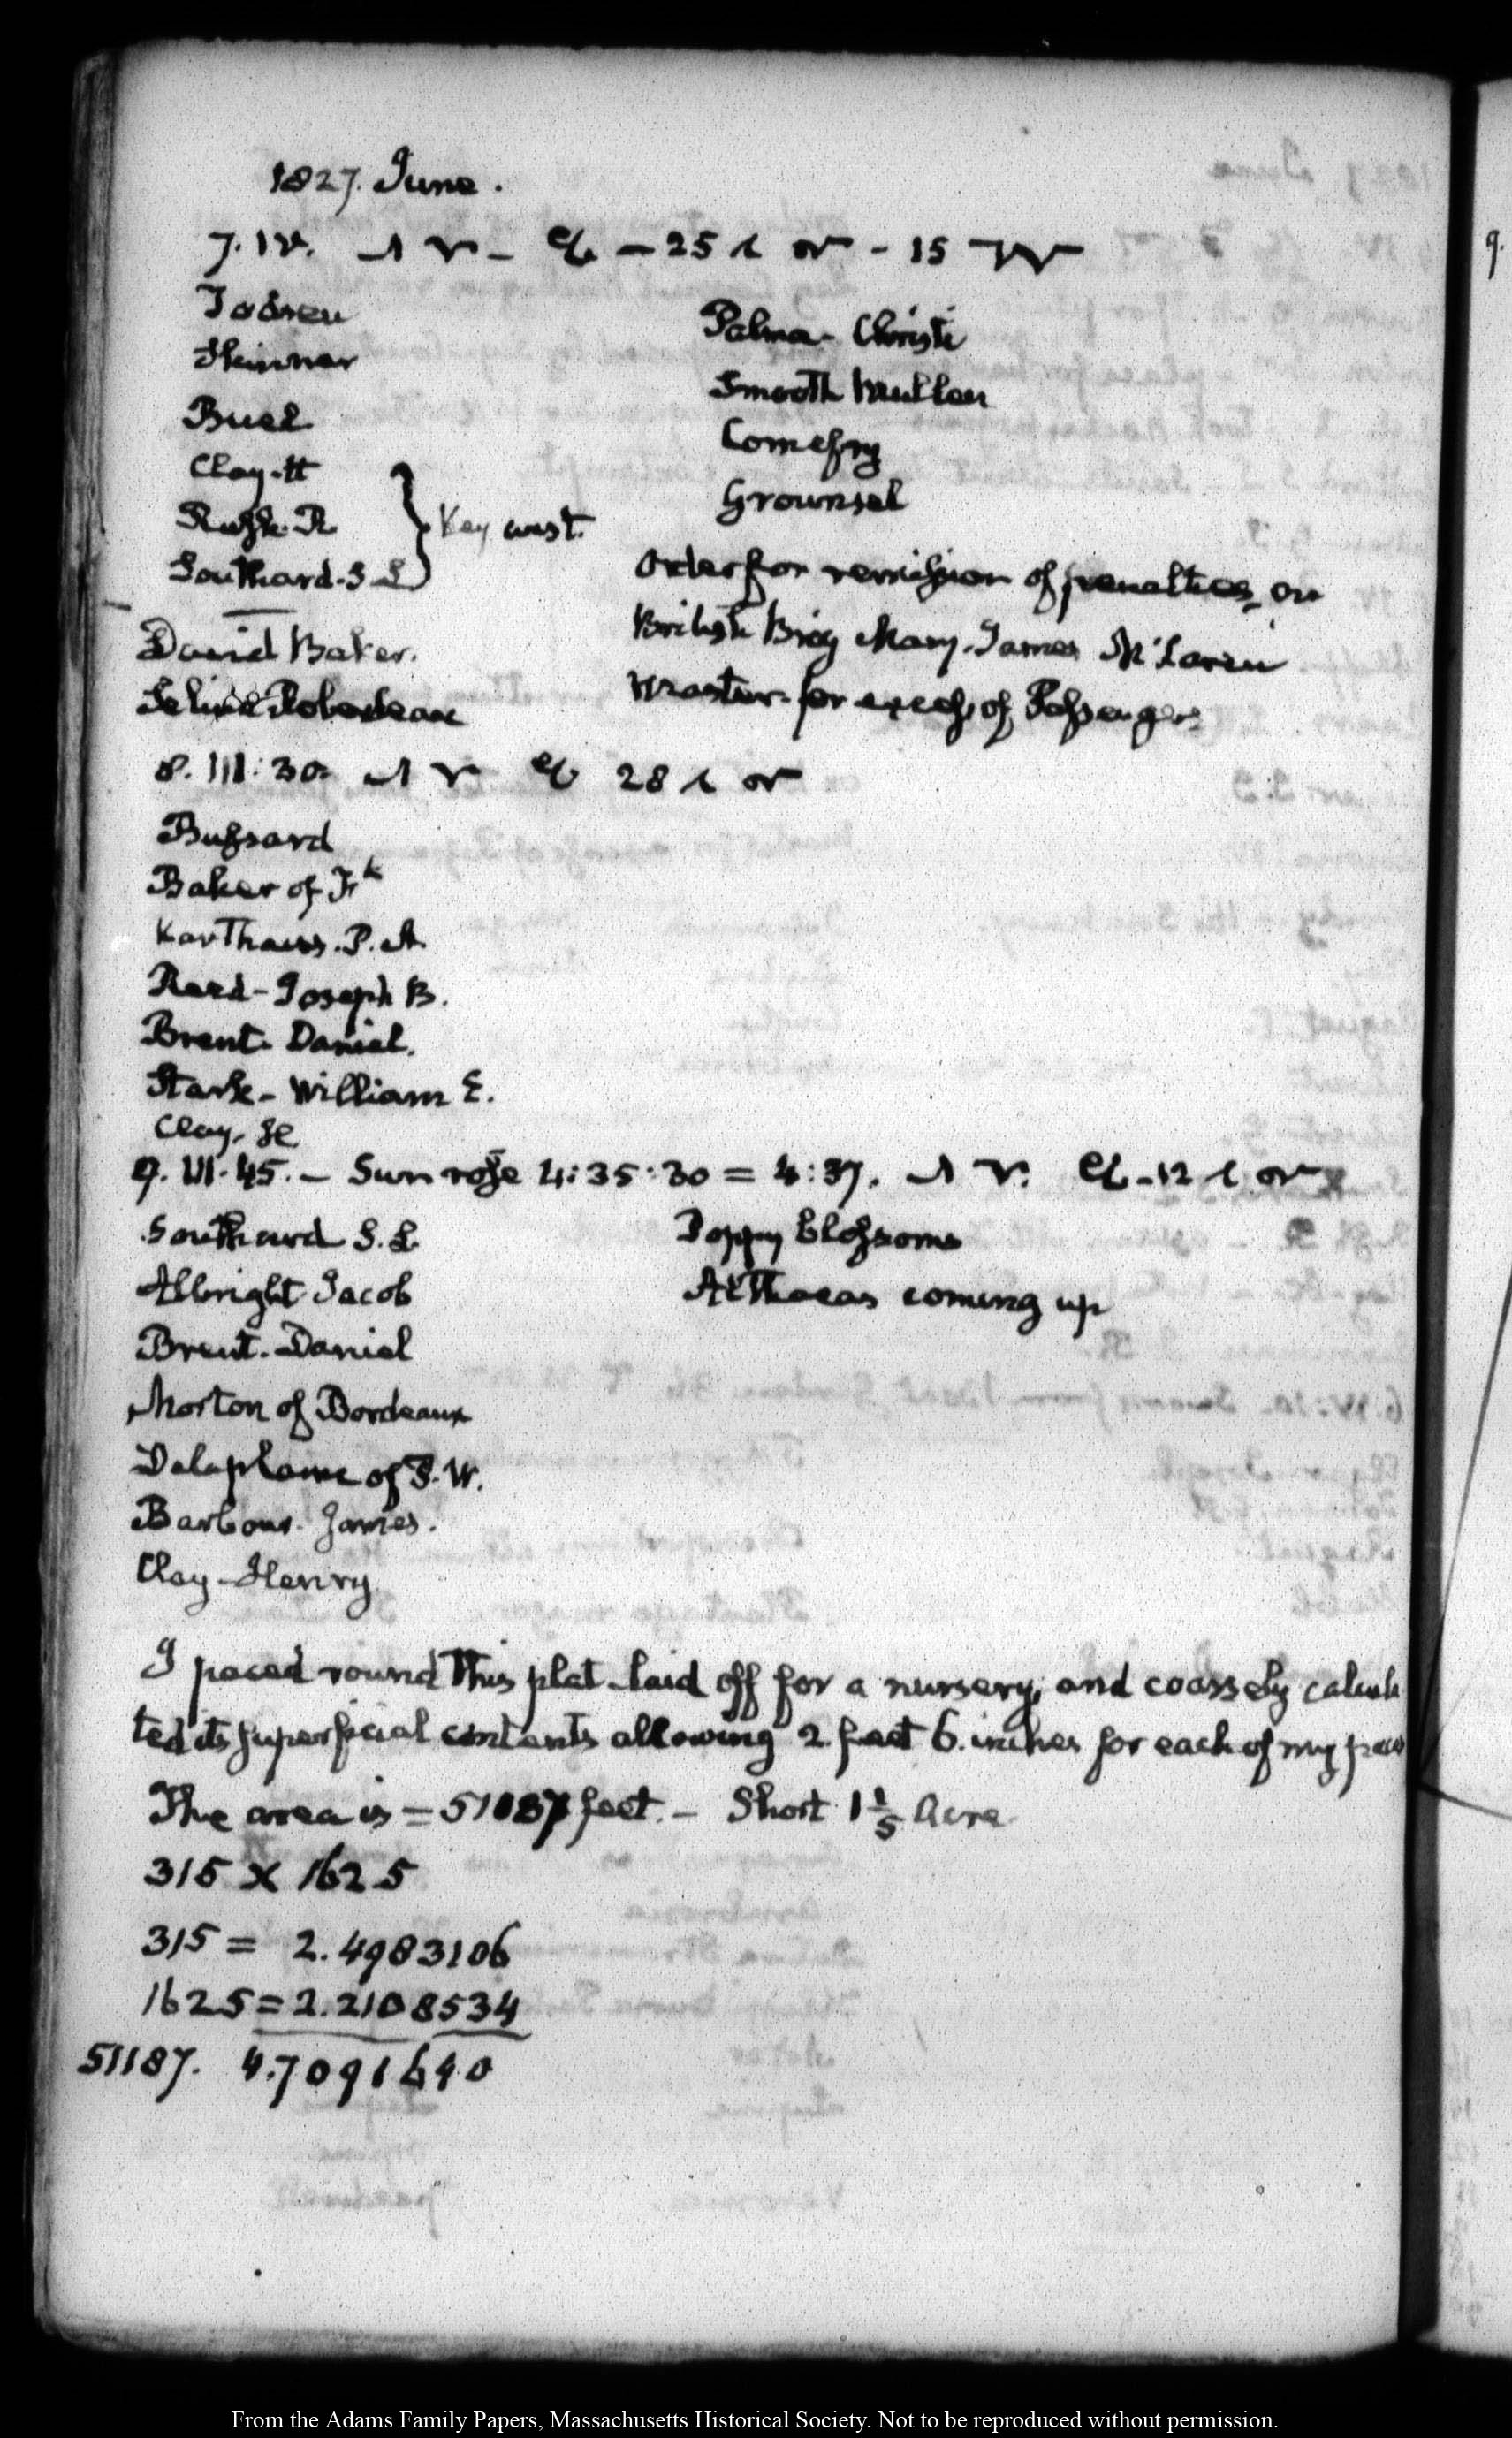 1827. June.
7. IV. – 25 – 15
Todsen
Skinner
Buel
Clay. H
Rush. R
Southard. S L
Key west.
David Baker.
Palma-Christi
Smooth Mullen
Comefry
Grounsel
Order for remission of penalties, on
British Brig Mary. James McLaren
Master. for excess of Passengers
8. III: 30. 28
Bussard
Baker of Frk
Karthaus. P. A.
Read-Joseph B.
Brent. Daniel.
Stark-William E.
Clay. H
9. III. 45. – Sun rose 4:35:30 = 4:37. – 12
Southard S. L.
Albright Jacob
Brent. Daniel
Morton of Bordeaux
Delaplaine of
Barbour. James.
Clay-Henry
Poppy blossoms
Althaeas coming up
I paced round this plat laid off for a nursery, and coarsely calcula
ted its superficial contents allowing 2. feet 6. inches for each of my pace
The area is = 51187 feet. – Short 1 1/5 Acre
315 x 1625
315 = 2.4983106
1625 = 2.2108534
51187. 4.7091640
From the Adams Family Papers, Massachusetts Historical Society. Not to be reproduced without permission.